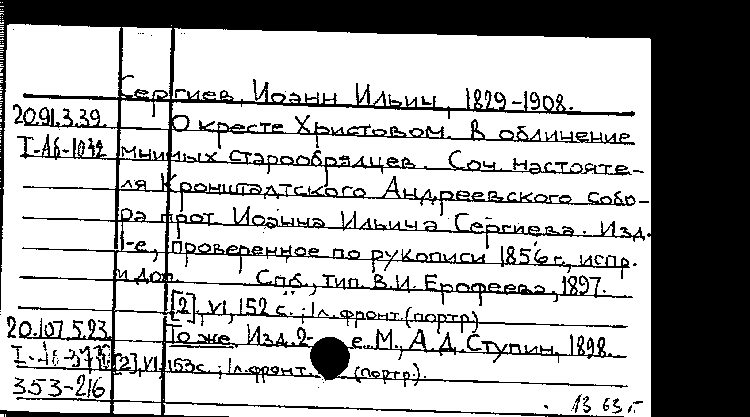 Сергиев, Иоанн Ильич, 1829-1908.
20.91.3.39. О кресте Христовом. В обличение
I-Аб-1032 мнимых старообрядцев. Соч. настояте-
ля Кронштадтского Андреевского собо-
ра прот. Иоанна Ильича Сергиева. Изд.
1-е, проверенное по рукописи 1856 г., испр.
и доп. Спб., тип. В.И. Ерофеева, 1897.
[2], VI, 152 с.; 1 л. фронт. (портр.)
20.107.5.23. То же. Изд. 2-е. М., А.Д. Ступин, 1898.
[2], VI, 153 с.; 1 л. фронт. (портр.).
353-216
13 63 г